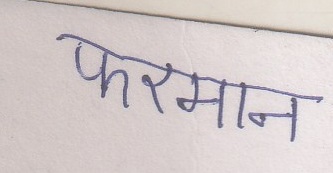 फरमान